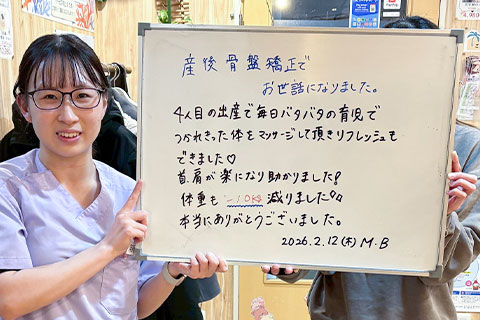 産後骨盤矯正で
お世話になりました。
4人目の出産で毎日バタバタの育児で
つかれきった体をマッサージして頂きリフレッシュも
できました♡
首.肩が楽になり助かりました!
体重も -10kg 減りました!!
本当にありがとうございました。
2026.2.12(木) M.B